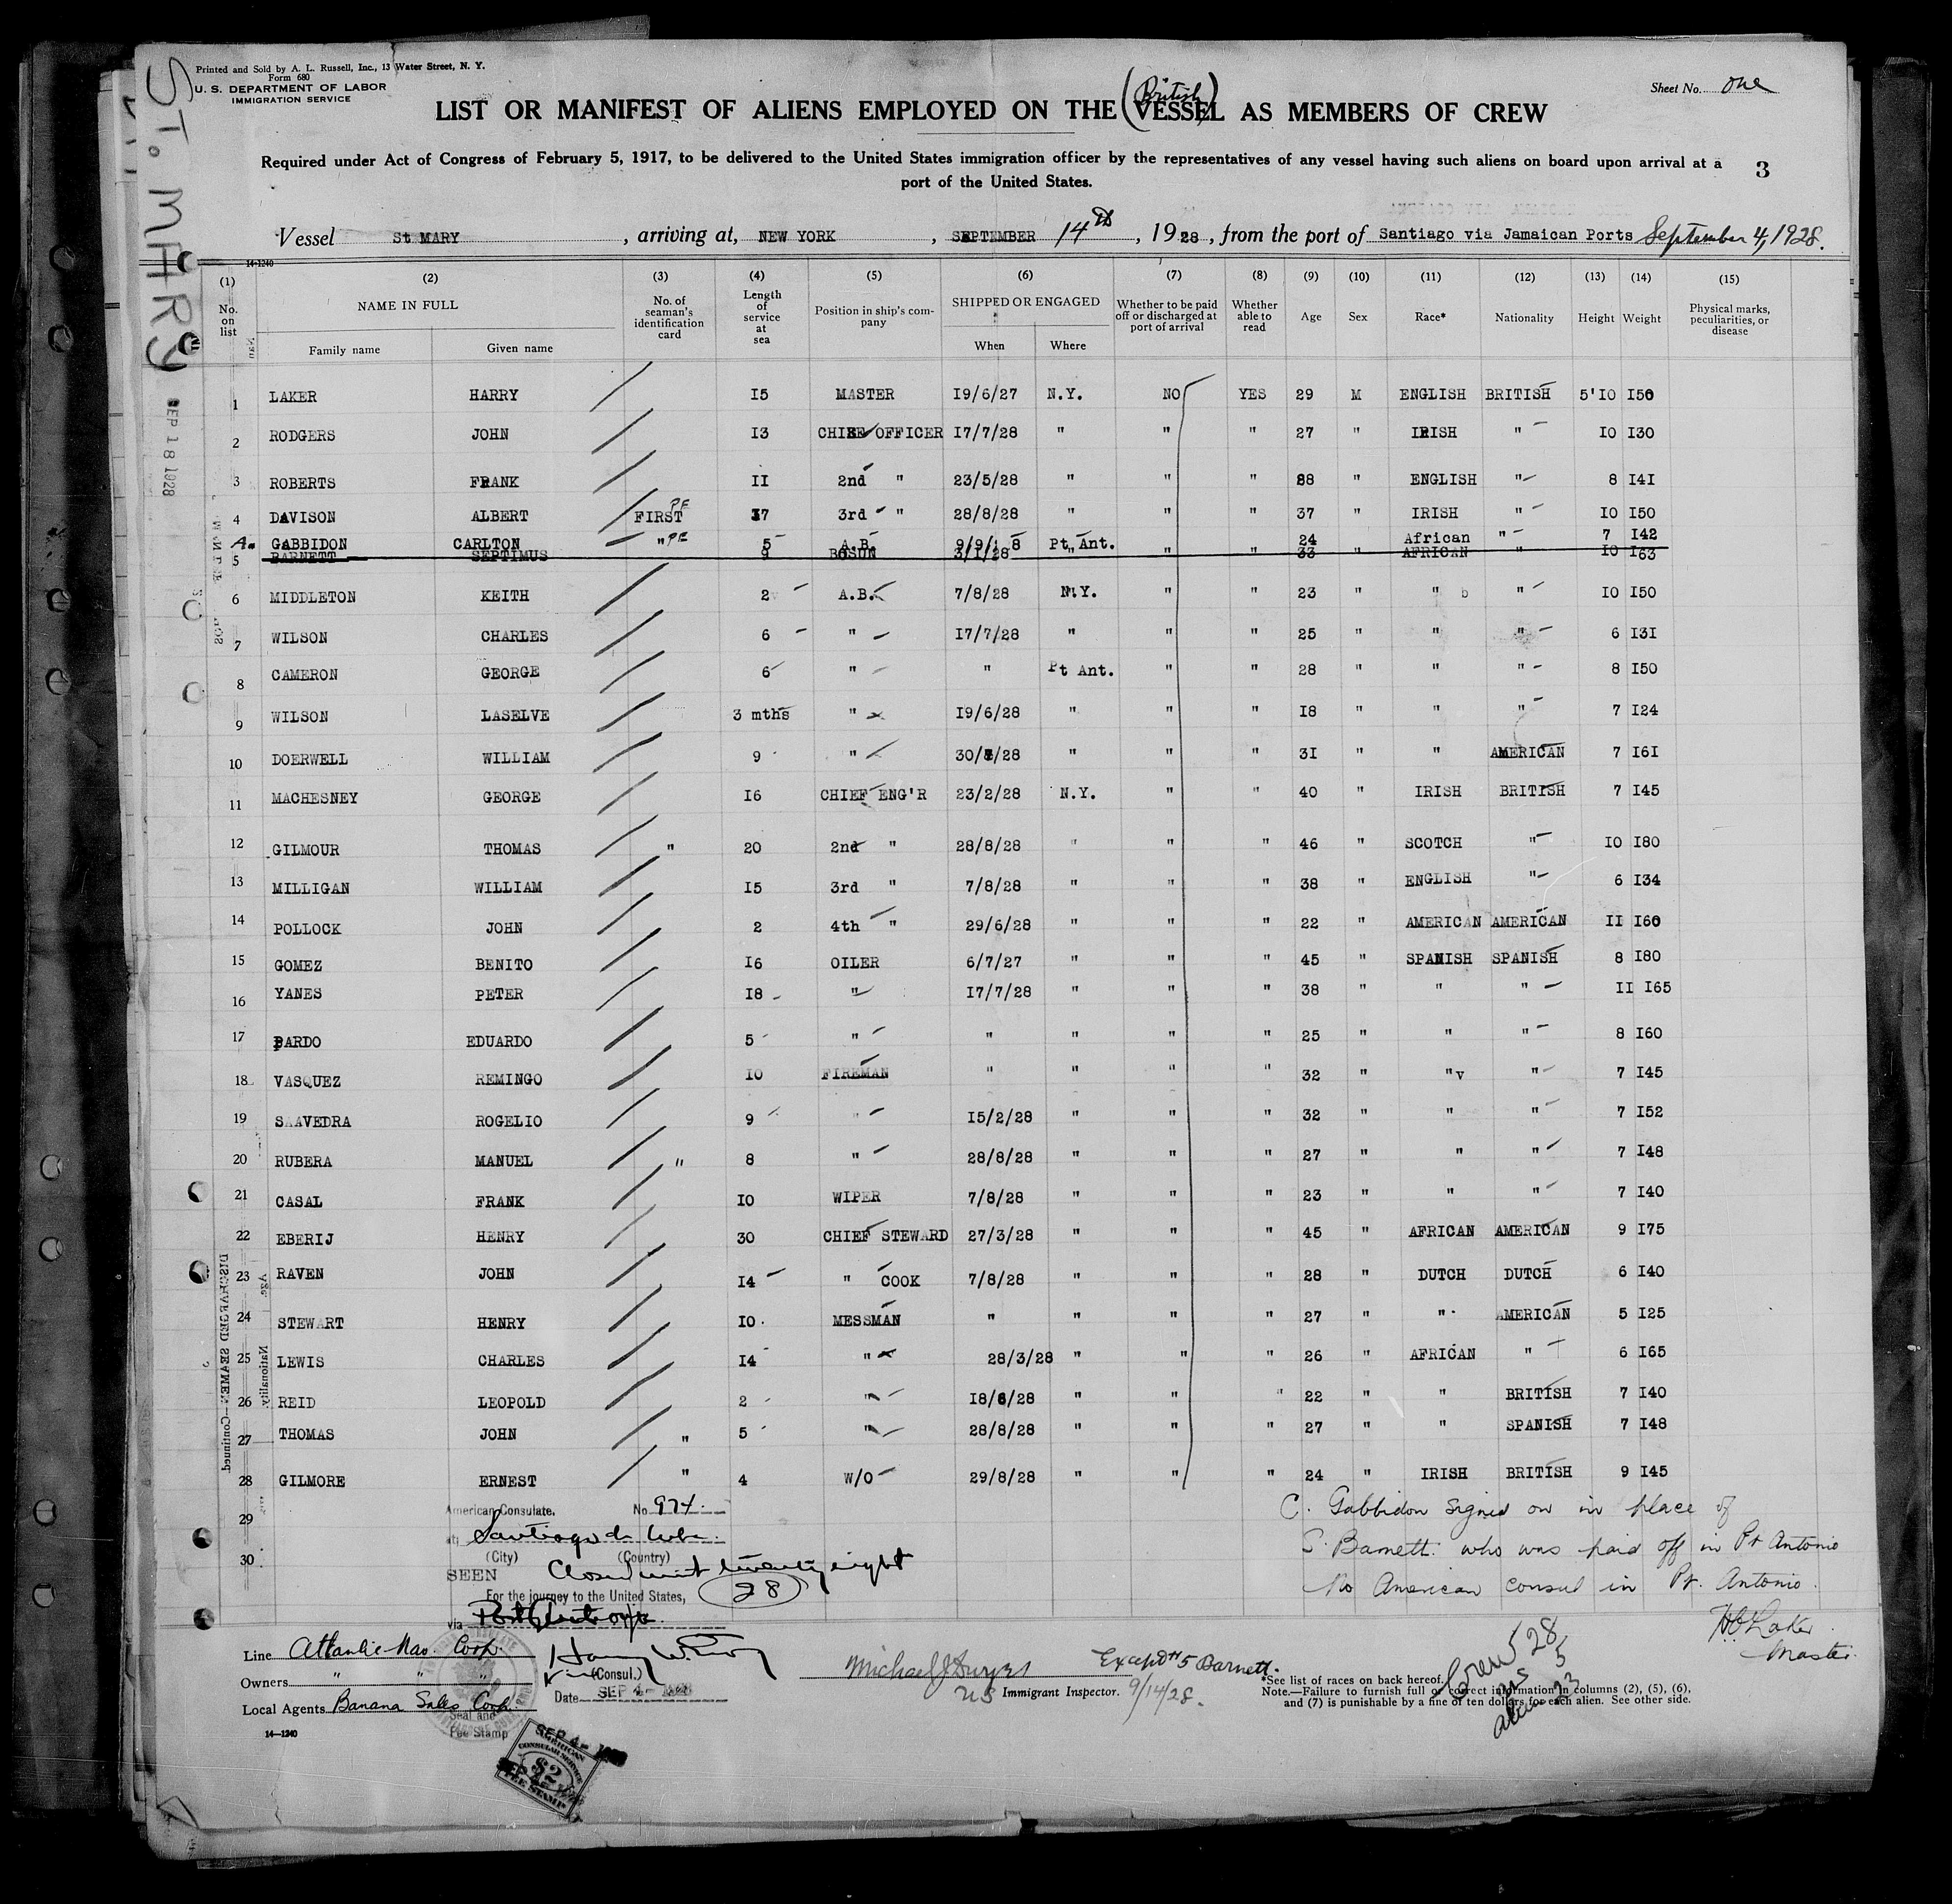 Printed and Sold by A. L. Russell, Inc., 13 Water Street, N. Y.
Form 680
U. S. DEPARTMENT OF LABOR
IMMIGRATION SERVICE
Sheet No. one
(British)
LIST OR MANIFEST OF ALIENS EMPLOYED ON THE VESSEL AS MEMBERS OF CREW
Required under Act of Congress of February 5, 1917, to be delivered to the United States immigration officer by the representatives of any vessel having such aliens on board upon arrival at a
port of the United States.
3
ST. MARY
SEP 18 1928
Vessel St MARY, arriving at, NEW YORK, SEPTEMBER 14th, 1928, from the port of Santiago via Jamaican Ports September 4, 1928.
14-1240
(1) (2) (3) (4) (5) (6) (7) (8) (9) (10) (11) (12) (13) (14) (15)
No. on list NAME IN FULL Family name Given name No. of seaman's identification card Length of service at sea Position in ship's company SHIPPED OR ENGAGED When Where Whether to be paid off or discharged at port of arrival Whether able to read Age Sex Race* Nationality Height Weight Physical marks, peculiarities, or disease
1 LAKER HARRY 15 MASTER 19/6/27 N.Y. NO YES 29 M ENGLISH BRITISH 5'10 150
2 RODGERS JOHN 13 CHIEF OFFICER 17/7/28 " " " 27 " IRISH " 10 130
3 ROBERTS FRANK 11 2nd " 23/5/28 " " " " ENGLISH " 8 141
4 DAVISON ALBERT FIRST PE 37 3rd " 28/8/28 " " " 37 " IRISH " 10 150
A. GABBIDON CARLTON " PE 5 A.B. 9/9/ 8 Pt Ant. 24 African " 7 142
5 BARNETT SEPTIMUS 9 BOSUN 3/1/28 " " " 33 " AFRICAN " 10 163
6 MIDDLETON KEITH 2 A.B. 7/8/28 N.Y. " " 23 " " b " 10 150
7 WILSON CHARLES 6 " 17/7/28 " " " 25 " " " 6 131
8 CAMERON GEORGE 6 " " Pt Ant. " " 28 " " " 8 150
9 WILSON LASELVE 3 mths " 19/6/28 " " " 18 " " " 7 124
10 DOERWELL WILLIAM 9 " " " " 31 " " AMERICAN 7 161
11 MACHESNEY GEORGE 16 CHIEF ENG'R 23/2/28 N.Y. " " 40 " IRISH BRITISH 7 145
12 GILMOUR THOMAS " 20 2nd " 28/8/28 " " " 46 " SCOTCH " 10 180
13 MILLIGAN WILLIAM 15 3rd " 7/8/28 " " " 38 " ENGLISH " 6 134
14 POLLOCK JOHN 2 4th " 29/6/28 " " " 22 " AMERICAN AMERICAN 11 160
15 GOMEZ BENITO 16 OILER 6/7/27 " " " 45 " SPANISH SPANISH 8 180
16 YANES PETER 18 " 17/7/28 " " " 38 " " " 11 165
17 PARDO EDUARDO 5 " " " " " 25 " " " 8 160
18 VASQUEZ REMINGO 10 FIREMAN " " " " 32 " " v " 7 145
19 SAAVEDRA ROGELIO 9 " 15/2/28 " " " 32 " " " 7 152
20 RUBERA MANUEL " 8 " 28/8/28 " " " 27 " " " 7 148
21 CASAL FRANK 10 WIPER 7/8/28 " " " 23 " " " 7 140
22 EBERIJ HENRY 30 CHIEF STEWARD 27/3/28 " " " 45 " AFRICAN AMERICAN 9 175
23 RAVEN JOHN 14 " COOK 7/8/28 " " " 28 " DUTCH DUTCH 6 140
24 STEWART HENRY 10 MESSMAN " " " " 27 " " AMERICAN 5 125
25 LEWIS CHARLES 14 " 28/3/28 " " " 26 " AFRICAN " 6 165
26 REID LEOPOLD 2 " 18/6/28 " " " 22 " " BRITISH 7 140
27 THOMAS JOHN " 5 " 28/8/28 " " " 27 " " SPANISH 7 148
28 GILMORE ERNEST " 4 W/O 29/8/28 " " " 24 " IRISH BRITISH 9 145
29
30
DISCHARGED SEAMEN—Continued.
Age Nationality.
American Consulate. No 974.
at Santiago de Cuba.
(City) (Country)
SEEN Closed with twenty eight
For the journey to the United States, 28
via Port Antonio
(Consul.)
Date SEP 4- 1928
Seal and
Fee Stamp
SEP 4- 1928
AMERICAN
CONSULAR SERVICE
$2
FEE STAMP
C. Gabbidon signed on in place of
S. Barnett who was paid off in Pt Antonio
No American consul in Pt. Antonio.
H Laker
Master.
Line Atlantic Nav. Corp.
Owners " " "
Local Agents Banana Sales Corp.
14—1240
Except #5 Barnett.
US Immigrant Inspector. 9/14/28.
*See list of races on back hereof.
Note.—Failure to furnish full or correct information in columns (2), (5), (6),
and (7) is punishable by a fine of ten dollars for each alien. See other side.
Crew 28
US 5
aliens 23